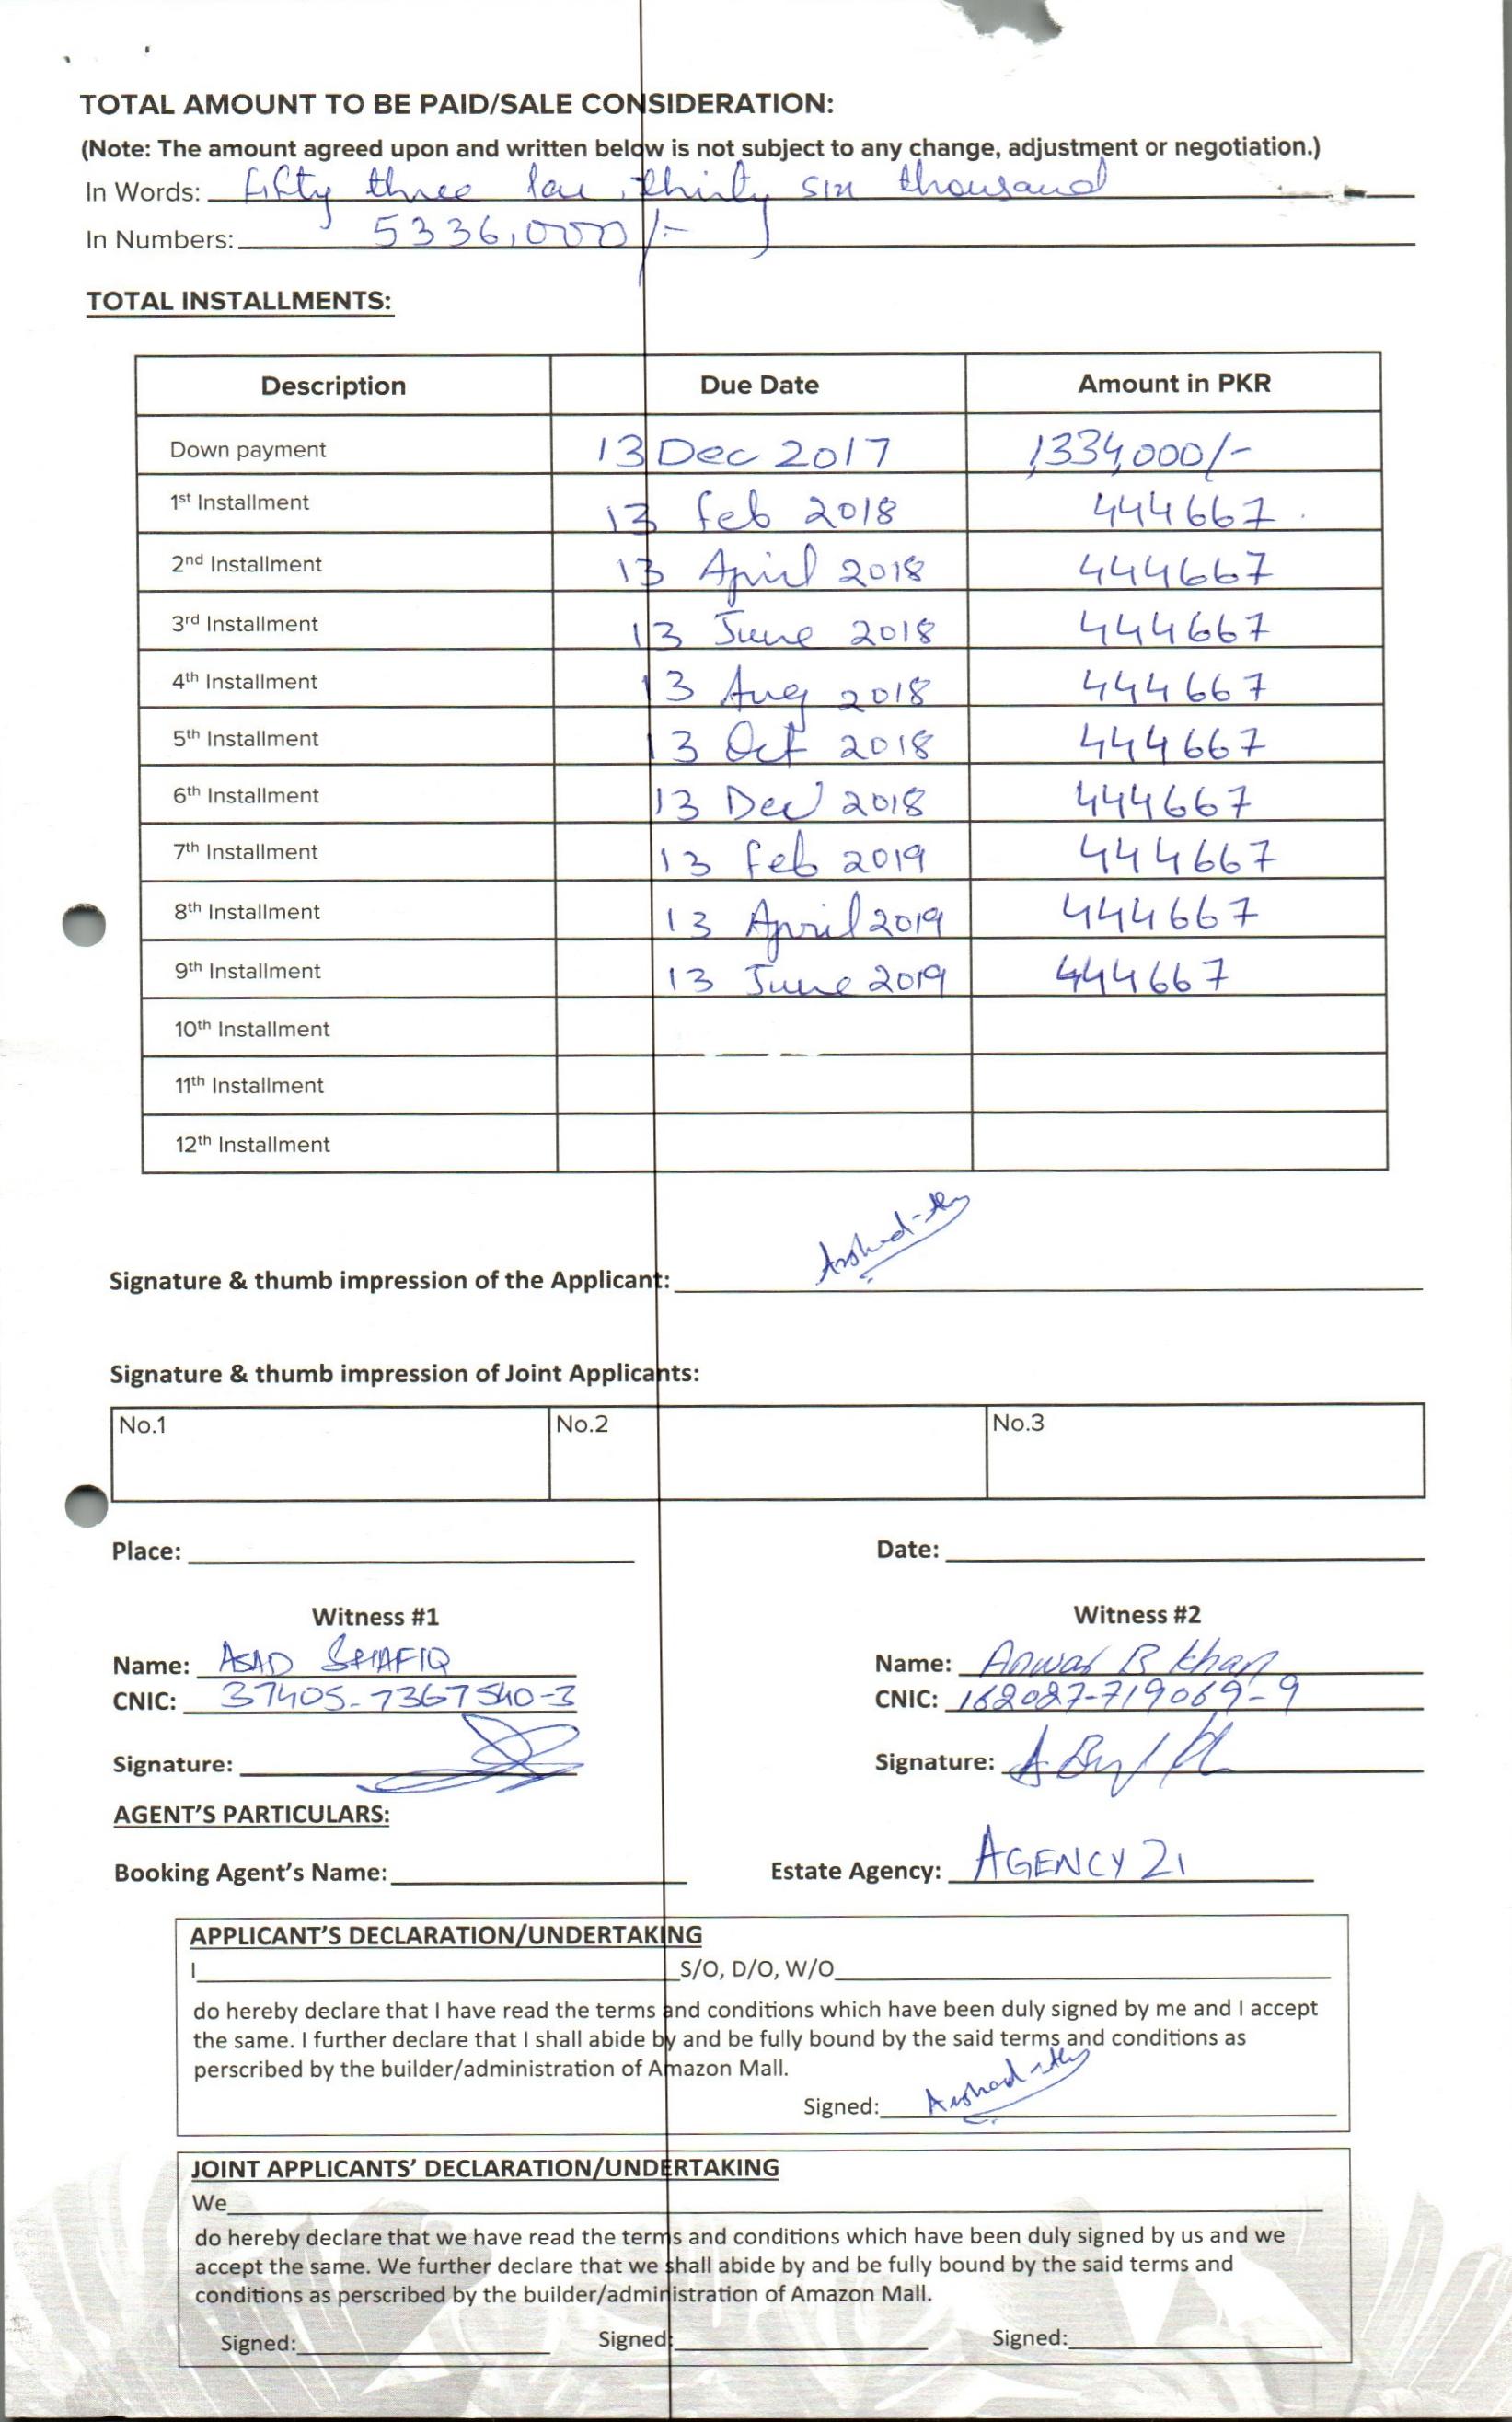 TOTAL AMOUNT TO BE PAID/SALE CONSIDERATION:
(Note: The amount agreed upon and written below is not subject to any change, adjustment or negotiation.)
In Words: fifty three lac thirty six thousand
In Numbers: 5336,000/-
TOTAL INSTALLMENTS:
Description Due Date Amount in PKR
Down payment 13 Dec 2017 1334,000/-
1st Installment 13 feb 2018 444667
2nd Installment 13 April 2018 444667
3rd Installment 13 June 2018 444667
4th Installment 13 Aug 2018 444667
5th Installment 13 Oct 2018 444667
6th Installment 13 Dec 2018 444667
7th Installment 13 feb 2019 444667
8th Installment 13 April 2019 444667
9th Installment 13 June 2019 444667
10th Installment
11th Installment
12th Installment
Signature & thumb impression of the Applicant:
Signature & thumb impression of Joint Applicants:
No.1 No.2 No.3
Place: Date:
Witness #1 Witness #2
Name: ASAD SHAFIQ Name: Anwar B Khan
CNIC: 37405-7367540-3 CNIC: 162027-719069-9
Signature: Signature:
AGENT'S PARTICULARS:
Booking Agent's Name: Estate Agency: AGENCY 21
APPLICANT'S DECLARATION/UNDERTAKING
I S/O, D/O, W/O
do hereby declare that I have read the terms and conditions which have been duly signed by me and I accept
the same. I further declare that I shall abide by and be fully bound by the said terms and conditions as
perscribed by the builder/administration of Amazon Mall.
Signed:
JOINT APPLICANTS' DECLARATION/UNDERTAKING
We
do hereby declare that we have read the terms and conditions which have been duly signed by us and we
accept the same. We further declare that we shall abide by and be fully bound by the said terms and
conditions as perscribed by the builder/administration of Amazon Mall.
Signed: Signed: Signed: